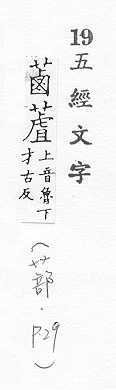 19五經文字
蓾蔖上音魯下
才古反
(艸部·P.29)